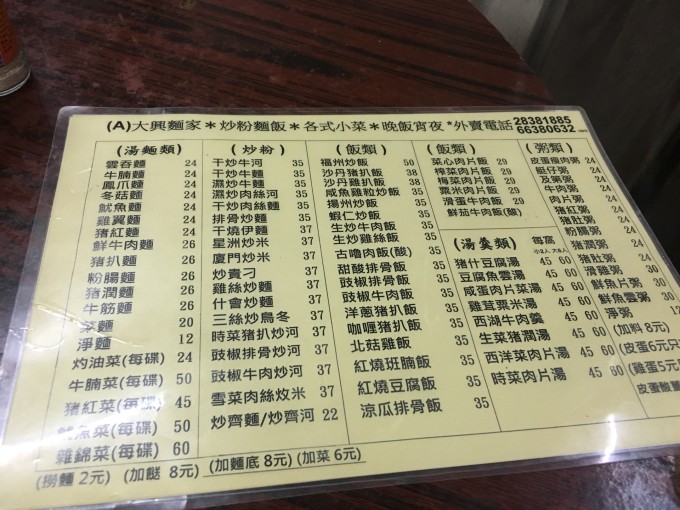 (A)大興麵家＊炒粉麵飯＊各式小菜＊晚飯宵夜*外賣電話28381885
66380632
(湯麵類)
雲吞麵 24
牛腩麵 24
鳳爪麵 24
冬菇麵 24
魷魚麵 24
雞翼麵 24
豬紅麵 24
鮮牛肉麵 26
豬扒麵 26
粉腸麵 26
豬潤麵 26
牛筋麵 26
菜麵 20
淨麵 12
灼油菜(每碟) 24
牛腩菜(每碟) 50
豬紅菜(每碟) 45
魷魚菜(每碟) 50
雜錦菜(每碟) 60
(撈麵 2元) (加餸 8元) (加麵底 8元) (加菜 6元)
(炒粉)
干炒牛河 35
干炒牛麵 35
濕炒牛河 35
濕炒肉絲河 35
干炒肉絲麵 35
排骨炒麵 35
干燒伊麵 35
星洲炒米 37
廈門炒米 37
炒貴刁 37
雞絲炒麵 37
什會炒麵 37
三絲炒烏冬 37
時菜豬扒炒河 37
豉椒排骨炒河 37
豉椒牛肉炒河 37
雪菜肉絲炆米 37
炒齋麵/炒齋河 22
(飯類)
福州炒飯 50
沙丹豬扒飯 38
沙丹雞扒飯 38
咸魚雞粒炒飯 38
揚州炒飯
蝦仁炒飯
生炒牛肉飯
生炒雞絲飯
古嚕肉飯(酸) 35
甜酸排骨飯 35
豉椒排骨飯 35
豉椒牛肉飯 35
洋蔥豬扒飯 35
咖喱豬扒飯 35
北菇雞飯 35
紅燒班腩飯 35
紅燒豆腐飯 35
涼瓜排骨飯 35
(飯類)
菜心肉片飯 29
榨菜肉片飯 29
梅菜肉片飯 29
粟米肉片飯 29
滑蛋牛肉飯 29
鮮茄牛肉飯(酸)
(湯羹類) 每窩
豬什豆腐湯 45 60
豆腐魚雲湯 45 60
咸蛋肉片菜湯 45 60
雞茸粟米湯 45 60
西湖牛肉羹 45 60
生菜豬潤湯 45 60
西洋菜肉片湯 45 60
時菜肉片湯 45 60
(粥類)
皮蛋瘦肉粥 24
艇仔粥 24
及第粥 24
牛肉粥 24
肉片粥 24
豬紅粥 24
豬肚粥 24
粉腸粥 24
豬潤粥 24
豬骨粥 24
滑雞粥 30
鮮魚片粥 30
鮮魚雲粥 30
淨粥 12
(加料 8元)
(皮蛋6元只
(雞蛋5元
皮蛋酸薑